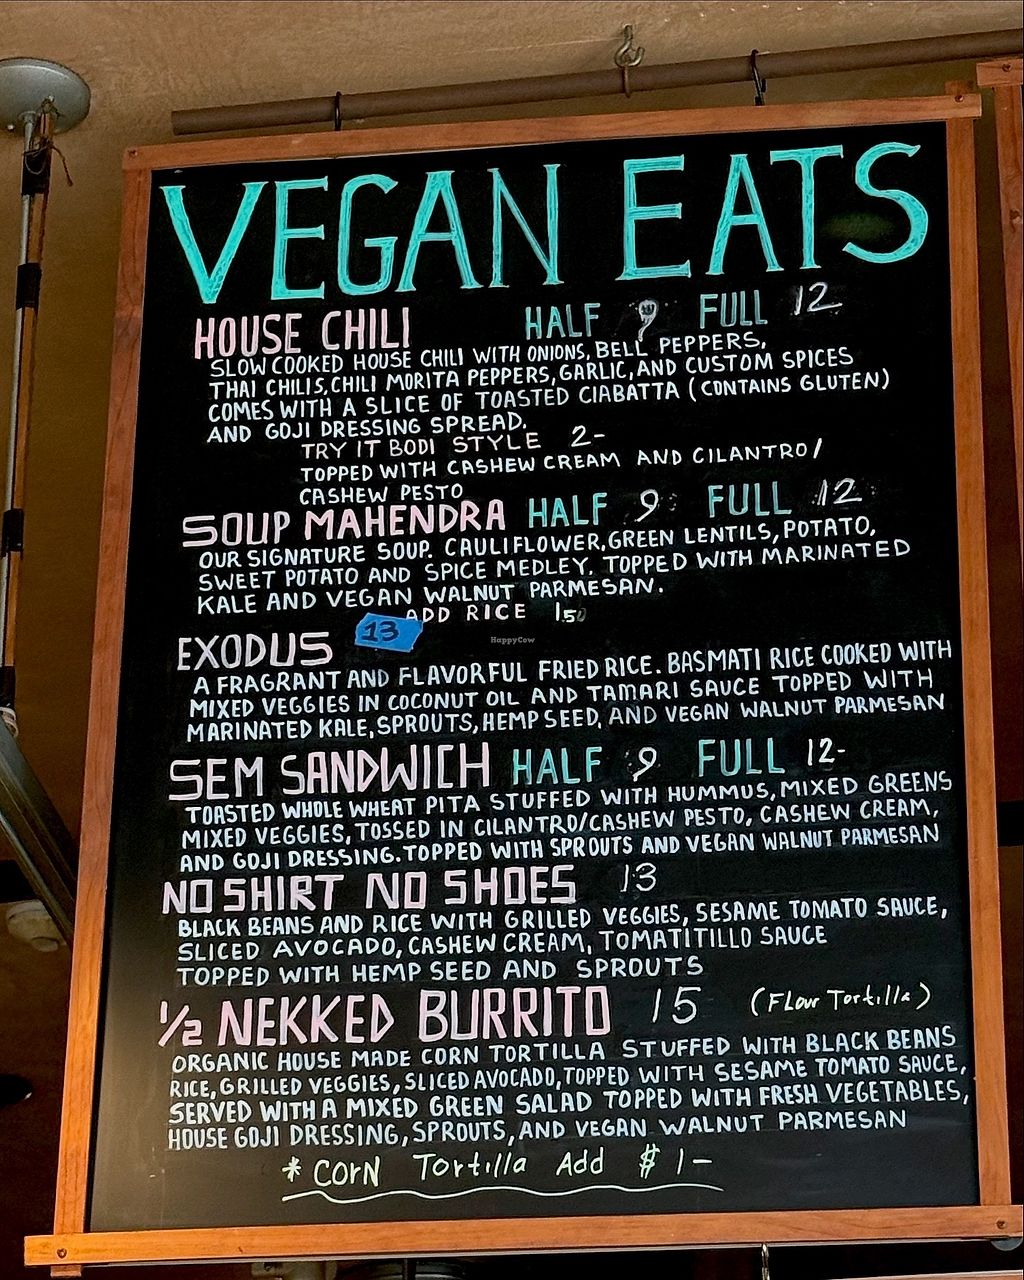 VEGAN EATS
HOUSE CHILI HALF 9 FULL 12
SLOW COOKED HOUSE CHILI WITH ONIONS, BELL PEPPERS,
THAI CHILIS, CHILI MORITA PEPPERS, GARLIC, AND CUSTOM SPICES
COMES WITH A SLICE OF TOASTED CIABATTA (CONTAINS GLUTEN)
AND GOJI DRESSING SPREAD.
TRY IT BODI STYLE 2-
TOPPED WITH CASHEW CREAM AND CILANTRO/
CASHEW PESTO
SOUP MAHENDRA HALF 9 FULL 12
OUR SIGNATURE SOUP. CAULIFLOWER, GREEN LENTILS, POTATO,
SWEET POTATO AND SPICE MEDLEY. TOPPED WITH MARINATED
KALE AND VEGAN WALNUT PARMESAN.
ADD RICE 1.50
HappyCow
EXODUS 13
A FRAGRANT AND FLAVORFUL FRIED RICE. BASMATI RICE COOKED WITH
MIXED VEGGIES IN COCONUT OIL AND TAMARI SAUCE TOPPED WITH
MARINATED KALE, SPROUTS, HEMP SEED, AND VEGAN WALNUT PARMESAN
SEM SANDWICH HALF 9 FULL 12-
TOASTED WHOLE WHEAT PITA STUFFED WITH HUMMUS, MIXED GREENS
MIXED VEGGIES, TOSSED IN CILANTRO/CASHEW PESTO, CASHEW CREAM,
AND GOJI DRESSING. TOPPED WITH SPROUTS AND VEGAN WALNUT PARMESAN
NO SHIRT NO SHOES 13
BLACK BEANS AND RICE WITH GRILLED VEGGIES, SESAME TOMATO SAUCE,
SLICED AVOCADO, CASHEW CREAM, TOMATITILLO SAUCE
TOPPED WITH HEMP SEED AND SPROUTS
1/2 NEKKED BURRITO 15 (Flour Tortilla)
ORGANIC HOUSE MADE CORN TORTILLA STUFFED WITH BLACK BEANS
RICE, GRILLED VEGGIES, SLICED AVOCADO, TOPPED WITH SESAME TOMATO SAUCE,
SERVED WITH A MIXED GREEN SALAD TOPPED WITH FRESH VEGETABLES,
HOUSE GOJI DRESSING, SPROUTS, AND VEGAN WALNUT PARMESAN
* CORN Tortilla Add $ 1-